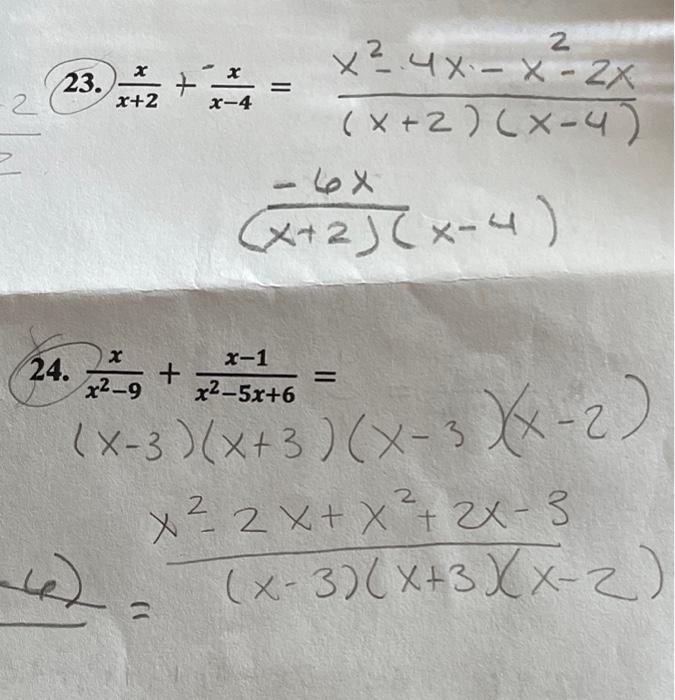 23. x/(x+2) + - x/(x-4) = (x² - 4x - x² - 2x)/((x+2)(x-4))
-6x/((x+2)(x-4))
24. x/(x²-9) + (x-1)/(x²-5x+6) =
(x-3)(x+3)(x-3)(x-2)
= (x² - 2x + x² + 2x - 3)/((x-3)(x+3)(x-2))